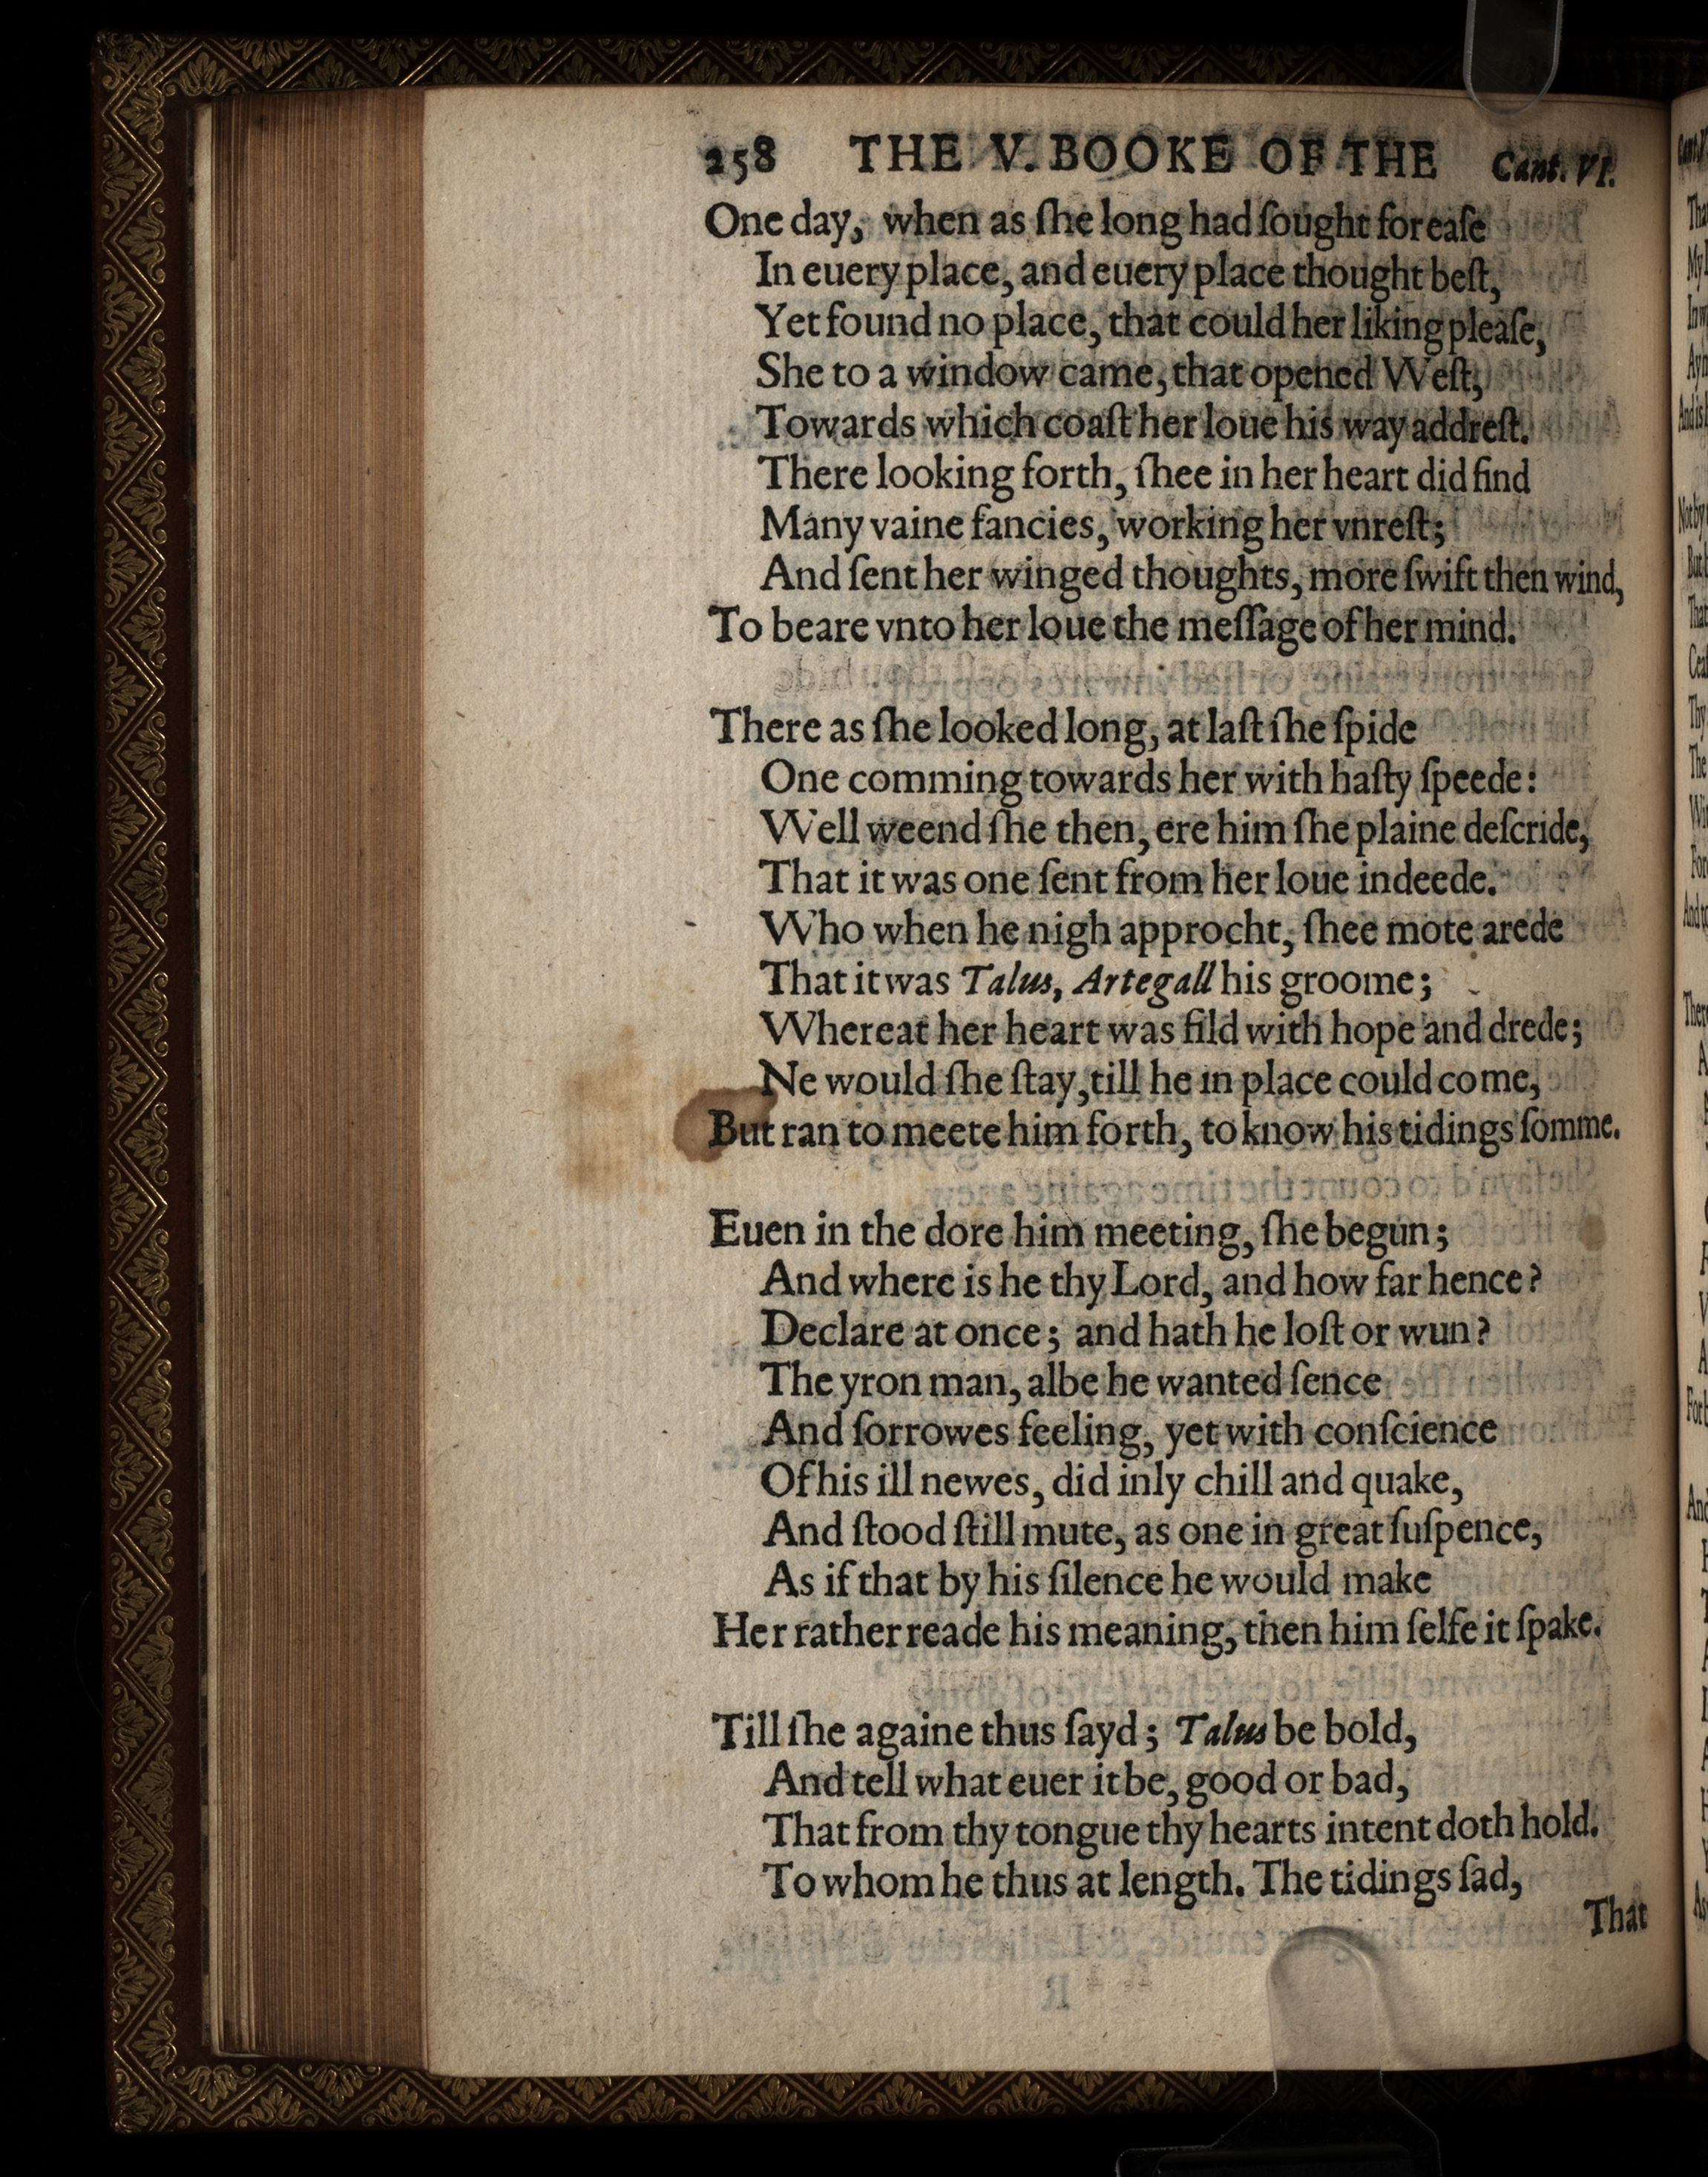 258 THE V. BOOKE OF THE Cant. VI.
One day, when as ſhe long had ſought for eaſe
In euery place, and euery place thought beſt,
Yet found no place, that could her liking pleaſe,
She to a window came, that opened VVeſt,
Towards which coaſt her loue his way addreſt.
There looking forth, ſhee in her heart did find
Many vaine fancies, working her vnreſt;
And ſent her winged thoughts, more ſwift then wind,
To beare vnto her loue the meſſage of her mind.
There as ſhe looked long, at laſt ſhe ſpide
One comming towards her with haſty ſpeede:
VVell weend ſhe then, ere him ſhe plaine deſcride,
That it was one ſent from her loue indeede.
VVho when he nigh approcht, ſhee mote arede
That it was Talus, Artegall his groome;
Whereat her heart was fild with hope and drede;
Ne would ſhe ſtay, till he in place could come,
But ran to meete him forth, to know his tidings ſomme.
Euen in the dore him meeting, ſhe begun;
And where is he thy Lord, and how far hence?
Declare at once; and hath he loſt or wun?
The yron man, albe he wanted ſence
And ſorrowes feeling, yet with conſcience
Of his ill newes, did inly chill and quake,
And ſtood ſtill mute, as one in great ſuſpence,
As if that by his ſilence he would make
Her rather reade his meaning, then him ſelfe it ſpake.
Till ſhe againe thus ſayd; Talus be bold,
And tell what euer it be, good or bad,
That from thy tongue thy hearts intent doth hold.
To whom he thus at length. The tidings ſad,
That